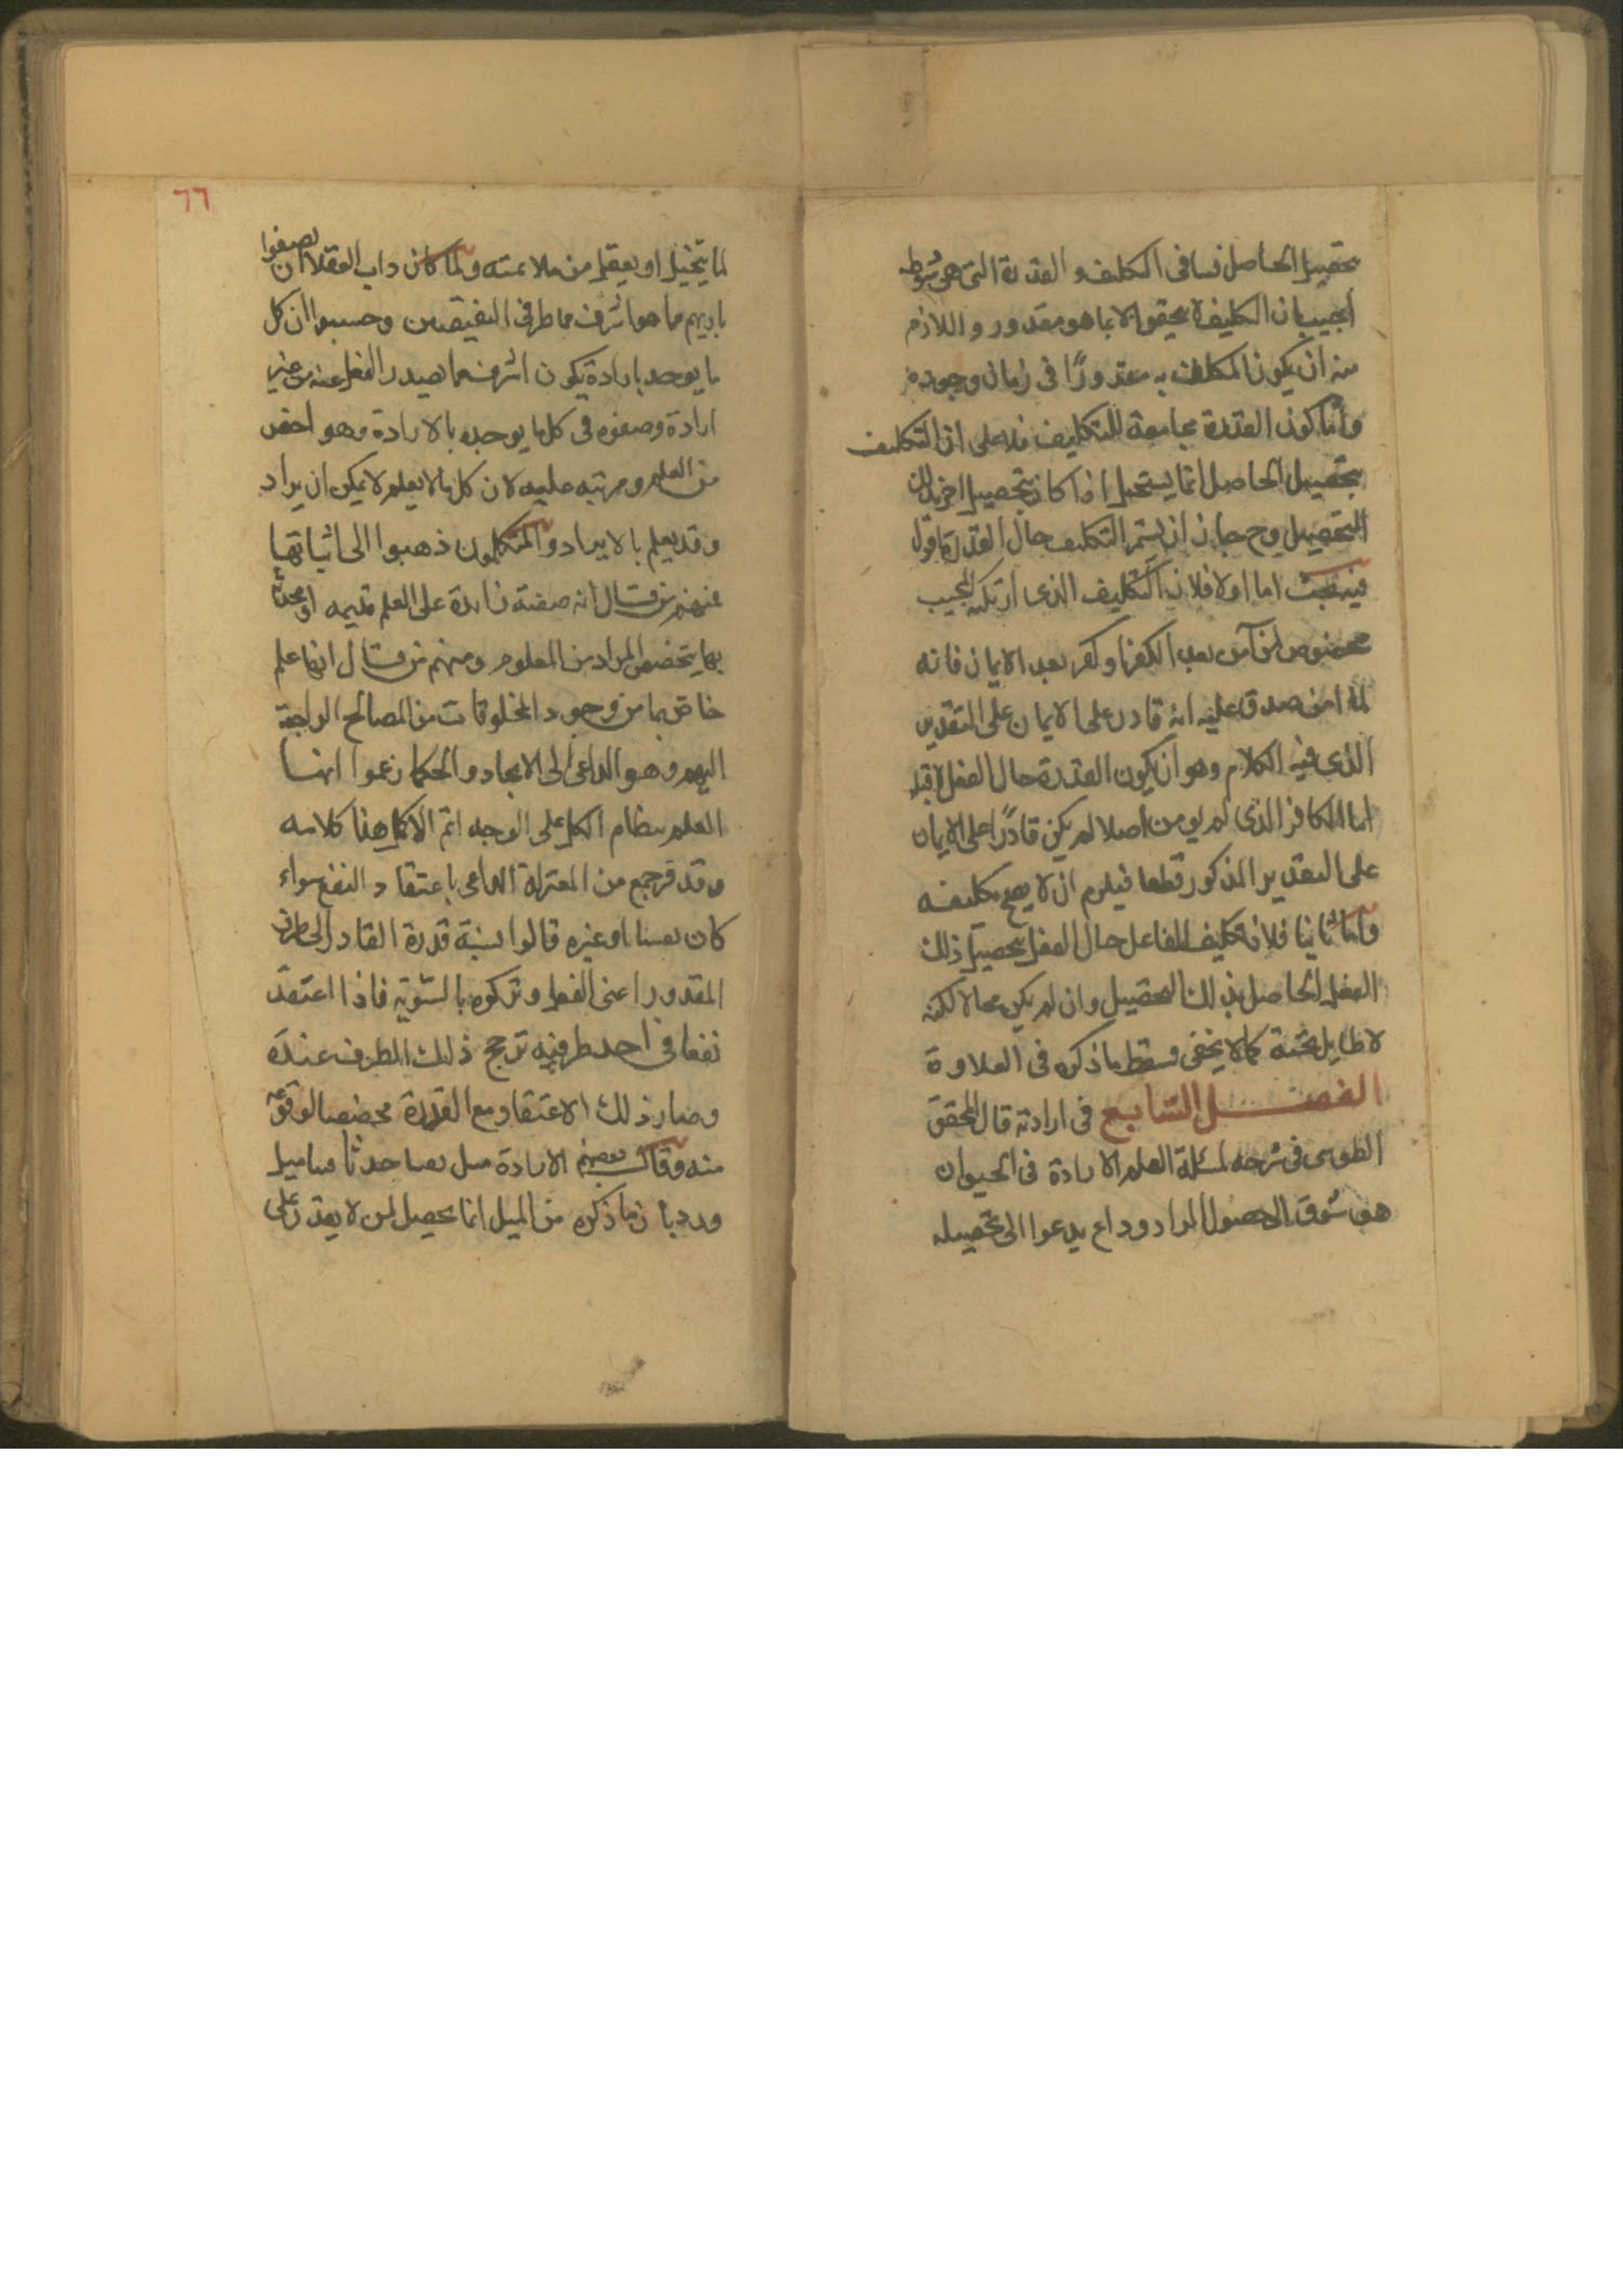 تحصيل الحاصل فينافى التكليف والقدرة التى هى شرطه
اجيب بان التكليف لا يتحقق الا بما هو مقدور واللازم
منه ان يكون المكلف به مقدورًا فى زمان وجوده
واما كون القدرة مجامعة للتكليف فلا على ان التكليف
بتحصيل الحاصل انما يستحيل اذا كان بتحصيل اخر
التحصيل وح جاز ان يستمر التكليف حال القدرة اقول
فيه بحث اما اولا فلان التكليف الذى ارتكبه المجيب
مخصوص لمن آمن بعد الكفر او كفر بعد الايمان فانه
لما امن صدق عليه انه قادر على الايمان على التقدير
الذى فيه الكلام وهو ان يكون القدرة حال الفعل لا قبله
اما الكافر الذى لم يومن اصلا لم يكن قادرًا على الايمان
على التقدير المذكور قطعا فيلزم ان لا يصح تكليفه
واما ثانيا فلان تكليف الفاعل حال الفعل بتحصيل ذلك
الفعل الحاصل بذلك التحصيل وان لم يكن محالا لكنه
لا طايل تحته كما لا يخفى فسقط ما ذكره فى العلاوة
الفصل السابع فى ارادته قال المحقق
الطوسى فى شرحه لمسئلة العلم الارادة فى الحيوان
هى شوق الى حصول المراد وداع يدعوا الى تحصيله
٦٦
لما يتخيل او يعقل من ملائمته ولما كان داب العقلا ان يصفوا
باريهم بما هو اشرف من طرفى النقيضين وحسبوا ان كل
ما يوجد بارادة يكون اشرف مما يصدر الفعل عنه من غير
ارادة وصفوه فى كل ما يوجده بالارادة وهو اخص
من العلم ومرتبه عليه لان كل ما لا يعلم لا يمكن ان يراد
وقد يعلم ما لا يراد والمتكلمون ذهبوا الى اثباتها
فمنهم من قال انه صفة زايدة على العلم قديمه او محدثة
بها يتخصص المراد من المعلوم ومنهم من قال انها علم
خاص بما من وجود المخلوقات من المصالح الراجعة
اليهم وهو الداعى الى الايجاد والحكما زعموا انها
العلم بنظام الكل على الوجه اتم الاكمل هذا كلامه
وقد فسر جمع من المعتزلة الداعى باعتقاد النفع سواء
كان يقينا او غيره قالوا نسبة قدرة القادر الى طرفى
المقدور اعنى الفعل وتركه بالسوية فاذا اعتقد
نفعا فى احد طرفيه ترجح ذلك الطرف عنده
وصار ذلك الاعتقاد مع القدرة مخصصا لوقوعه
منه وقال بعضهم الارادة ميل
ورد بان ما ذكره من الميل انما يحصل لمن لا يقدر على